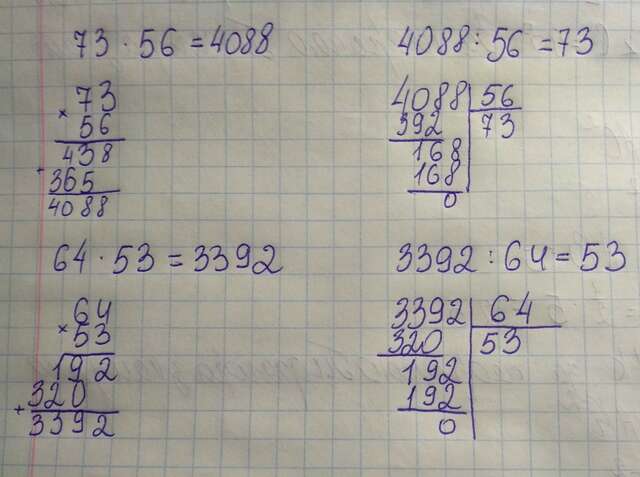 73 · 56 = 4088
× 73
56
438
365
4088
4088 : 56 = 73
4088 56
392 73
168
168
0
64 · 53 = 3392
64
× 53
192
+ 320
3392
3392 : 64 = 53
3392 64
320 53
192
192
0